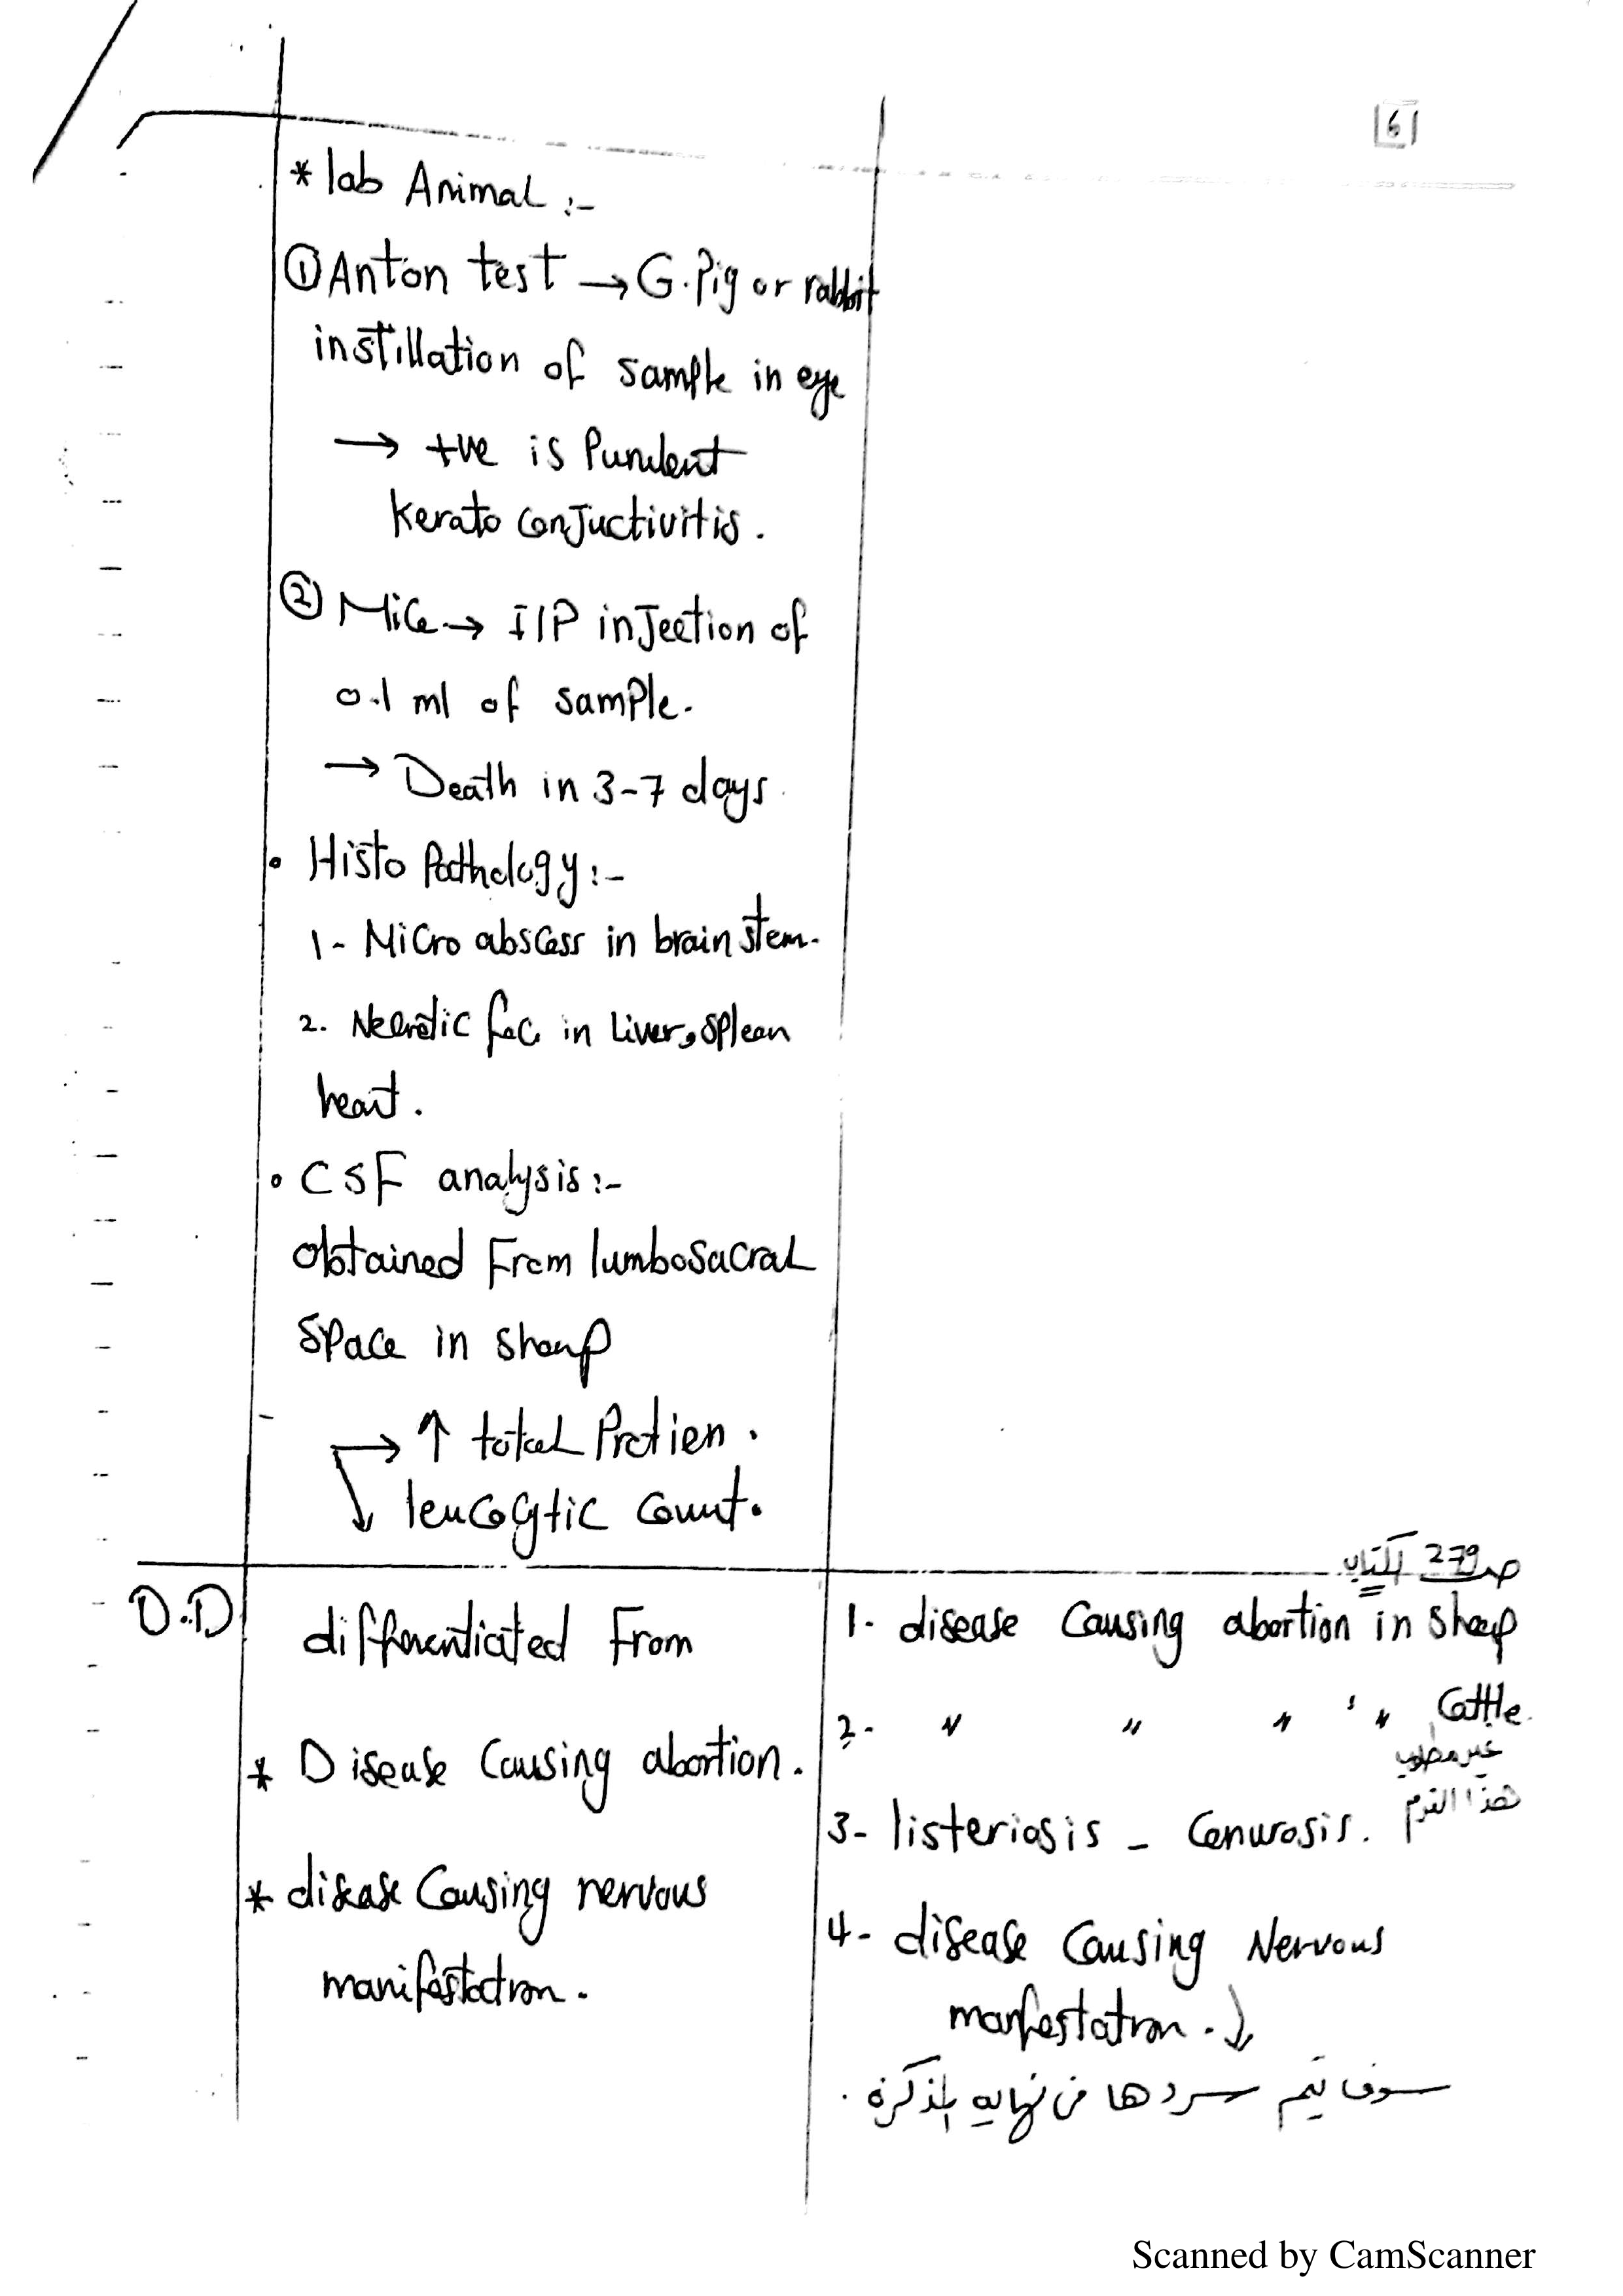 6
* lab Animal :-
① Anton test → G.Pig or rabbit
instillation of sample in eye
→ +ve is Purulent
Kerato conJuctivitis.
② Mice → I/P inJection of
0.1 ml of samPle.
→ Death in 3-7 days.
• Histo Pathology :-
1- Micro abscess in brain stem.
2. Necrotic foci in Liver, SPleen
heart.
• CSF analysis :-
obtained From lumbosacral
SPace in sheep
→ ↑ total Protien.
↓ leucocytic count.
D.D
differentiated From
* Disease Causing abortion.
* disease Causing nervous
manifestation.
ص 279 الكتاب
1- disease Causing abortion in Sheep
2- " " " " Cattle.
غير مطلوب
هذا الترم
3- listeriosis - Cenurosis.
4- disease Causing Nervous
manfestation. ↓
سوف يتم سردها في نهاية المذكرة.
Scanned by CamScanner